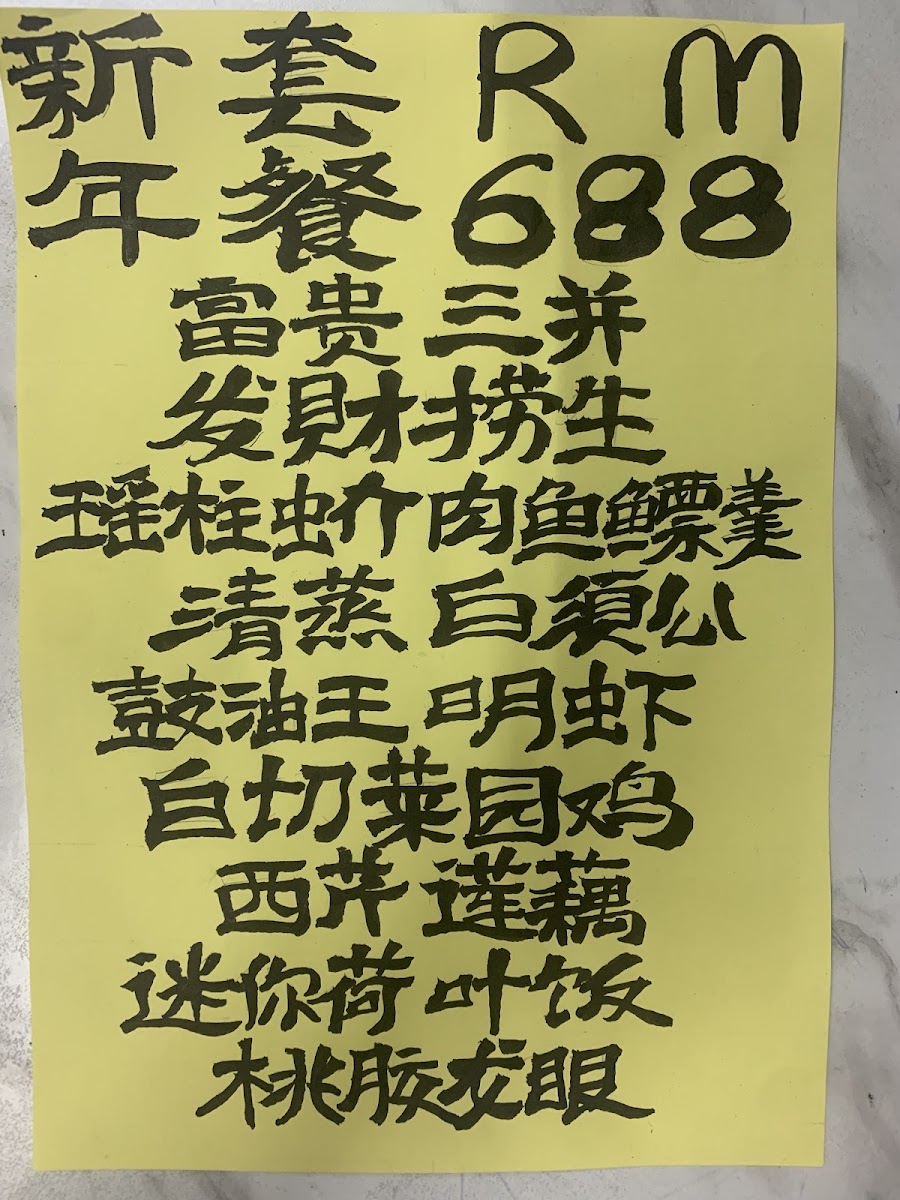 新年套餐 RM688
富贵三并
发財捞生
瑶柱虫介肉鱼鳔羹
清蒸白須公
鼓油王明虾
白切菜园鸡
西芹莲藕
迷你荷叶饭
桃胶龙眼